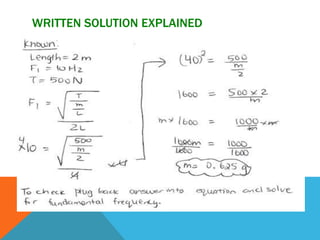 WRITTEN SOLUTION EXPLAINED
Known:
Length = 2m
F₁ = 10 Hz
T = 500N
F₁ = √(T / (m / L)) / 2L
4 × 10 = √(500 / (m / 2)) / 4 × 4
(40)² = 500 / (m / 2)
1600 = 500 × 2 / m
m × 1600 = 1000 / m × m
1600m / 1600 = 1000 / 1600
m = 0.625g
To check plug back answer into equation and solve
for fundamental frequency.